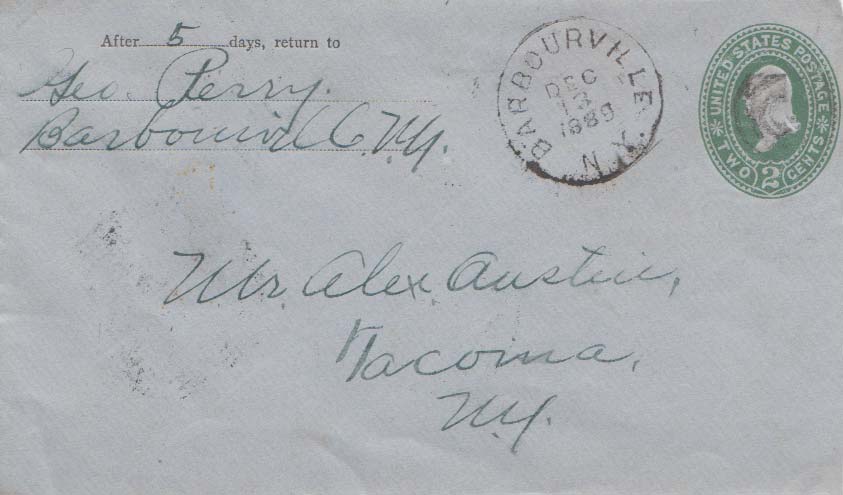 After 5 days, return to
Geo. Perry.
Barbourville, N.Y.
BARBOURVILLE
DEC
13
1889
N.Y.
UNITED STATES POSTAGE
TWO 2 CENTS
Mr. Alex. Austin,
Tacoma,
N.Y.